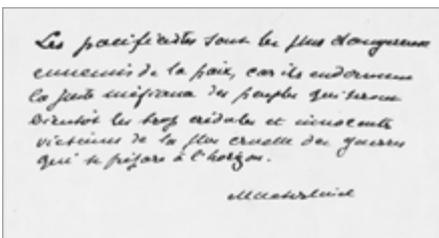 Les pacifistes sont les plus dangereux
ennemis de la paix, car ils endorment
la juste méfiance des peuples qui seront
bientôt les trop crédules et innocentes
victimes de la plus cruelle des guerres
qui se prépare à l'horizon.
Maeterlinck